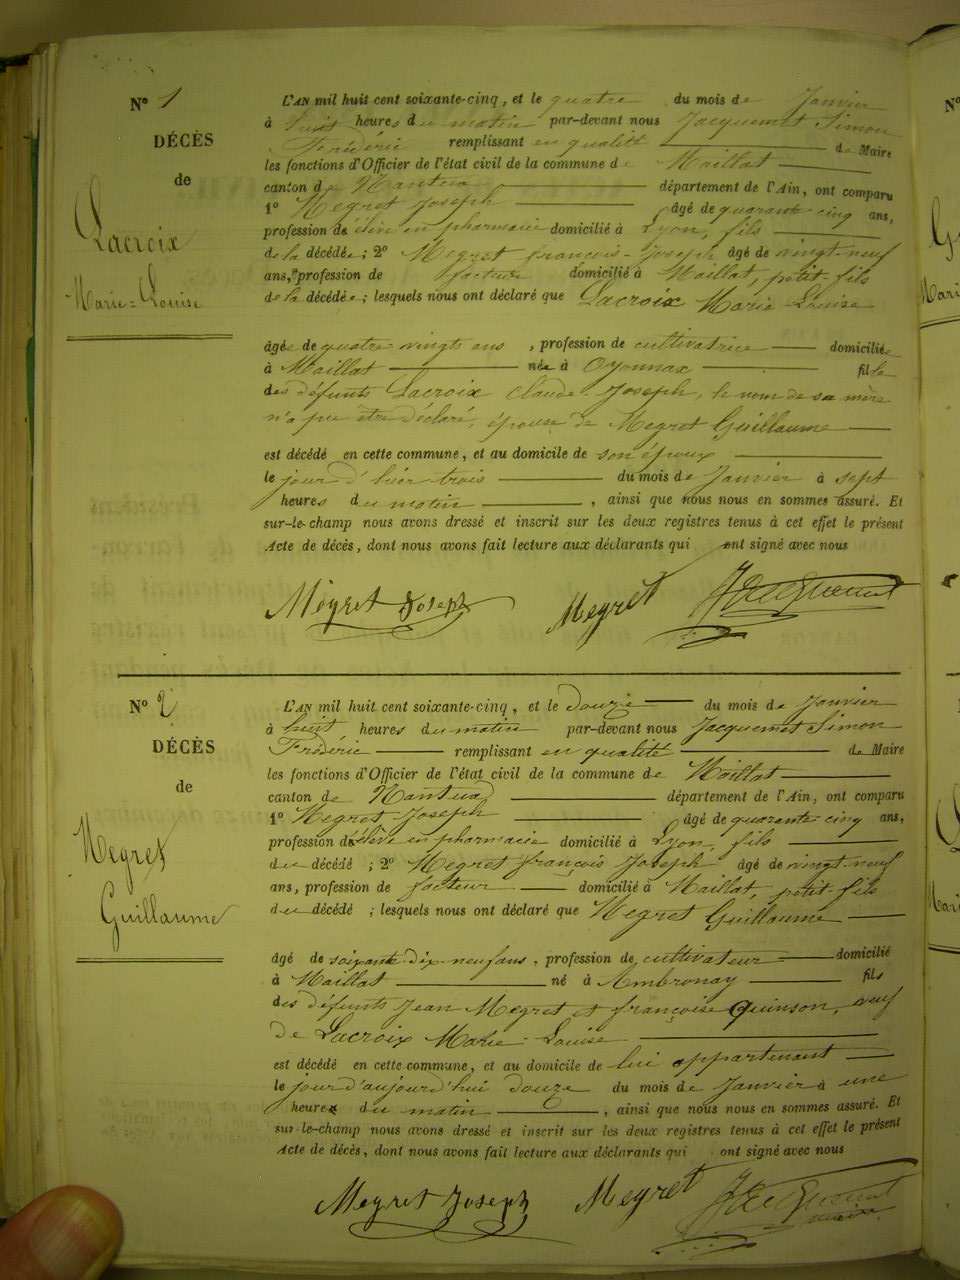 N° 1
DÉCÈS
de
Lacroix
Marie=Louise
L'AN mil huit cent soixante-cinq, et le quatre du mois de Janvier
à huit heures du matin par-devant nous Jacquemet Simon
Frédéric remplissant en qualité de Maire
les fonctions d'Officier de l'état civil de la commune de Maillat
canton de Nantua département de l'Ain, ont comparu
1° Megret Joseph âgé de quarante cinq ans,
profession de élève en pharmacie domicilié à Lyon, fils
de la décédée; 2° Megret françois-Joseph âgé de vingt-neuf
ans, profession de facteur domicilié à Maillat, petit-fils
de la décédée; lesquels nous ont déclaré que Lacroix Marie Louise
âgée de quatre vingts ans, profession de cultivatrice domiciliée
à Maillat née à Oyonnax fille
des défunts Lacroix Claude Joseph, le nom de sa mère
n'a pu être déclaré, épouse de Megret Guillaume
est décédé en cette commune, et au domicile de son époux
le jour d'hier trois du mois de Janvier à sept
heures du matin, ainsi que nous nous en sommes assuré. Et
sur-le-champ nous avons dressé et inscrit sur les deux registres tenus à cet effet le présent
Acte de décès, dont nous avons fait lecture aux déclarants qui ont signé avec nous
Megret Joseph Megret Jacquemet
N° 2
DÉCÈS
de
Megret
Guillaume
L'AN mil huit cent soixante-cinq, et le douze du mois de Janvier
à huit heures du matin par-devant nous Jacquemet Simon
Frédéric remplissant en qualité de Maire
les fonctions d'Officier de l'état civil de la commune de Maillat
canton de Nantua département de l'Ain, ont comparu
1° Megret Joseph âgé de quarante-cinq ans,
profession de élève en pharmacie domicilié à Lyon, fils
du décédé; 2° Megret françois Joseph âgé de vingt-neuf
ans, profession de facteur domicilié à Maillat, petit-fils
du décédé; lesquels nous ont déclaré que Megret Guillaume
âgé de soixante-dix-neuf ans, profession de cultivateur domicilié
à Maillat né à Ambronay fils
des défunts Jean Megret et françoise Quinson, veuf
de Lacroix Marie-Louise
est décédé en cette commune, et au domicile de lui appartenant
le jour d'aujourd'hui douze du mois de Janvier à une
heure du matin, ainsi que nous nous en sommes assuré. Et
sur-le-champ nous avons dressé et inscrit sur les deux registres tenus à cet effet le présent
Acte de décès, dont nous avons fait lecture aux déclarants qui ont signé avec nous
Megret Joseph Megret Jacquemet
maire